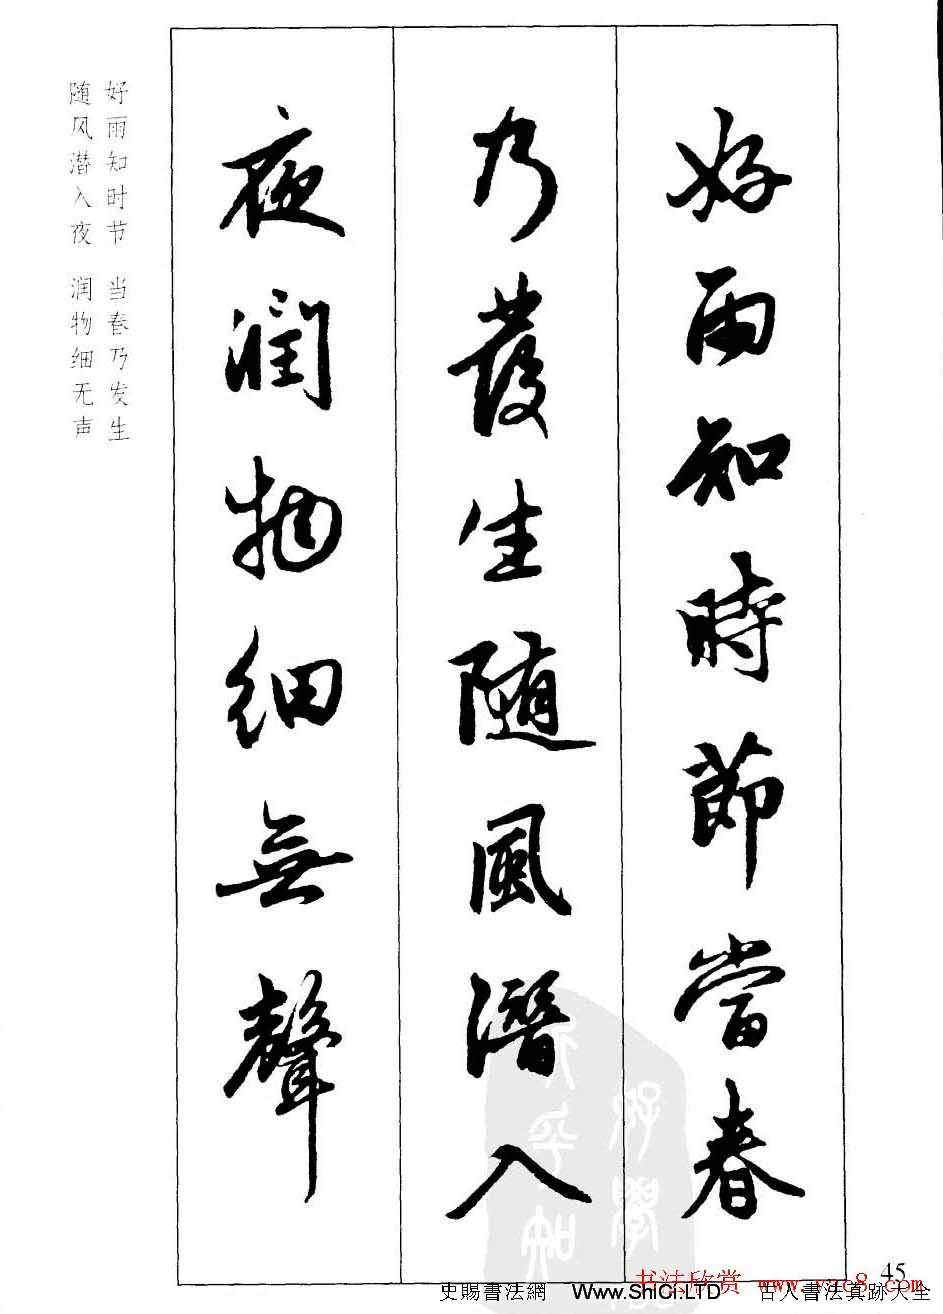 好雨知時節當春
乃發生随風潛入
夜潤物細無聲
好雨知时节 当春乃发生
随风潜入夜 润物细无声
45
书法欣赏
史賜書法網 Www.ShiCi.LTD 古人書法真跡大全